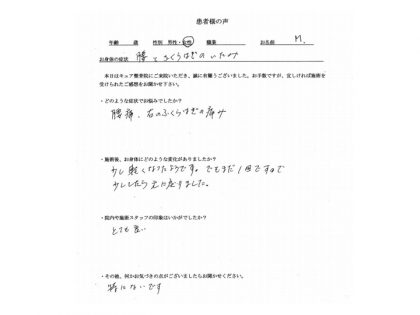 患者様の声
年齢　歳　性別　男性・女性　職業　お名前　M.
お身体の症状　腰とふくらはぎのいたみ
本日はキュア整骨院にご来院いただき、誠に有難うございました。お手数ですが、宜しければ施術を
受けられたご感想をお聞かせ下さい。
・どのような症状でお悩みでしたか？
腰痛、右のふくらはぎの痛み
・施術後、お身体にどのような変化がありましたか？
少し軽くなったようです。でもまだ1回ですので
少ししたら元に戻りました。
・院内や施術スタッフの印象はいかがでしたか？
とても良い
・その他、何かお気づきの点がございましたらお聞かせください。
特にないです